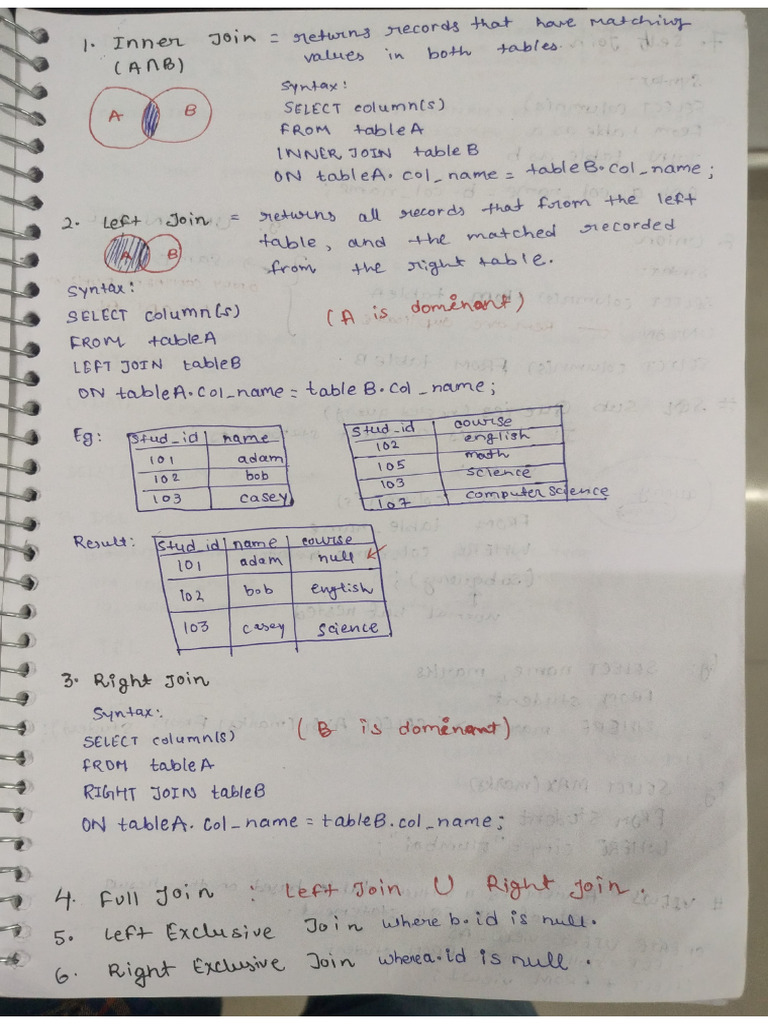 1. Inner Join = returns records that have matching
(A∩B) values in both tables.
A B
Syntax:
SELECT column(s)
FROM tableA
INNER JOIN tableB
ON tableA.col_name = tableB.col_name;
2. Left Join = returns all records that from the left
table, and the matched recorded
from the right table.
A B
Syntax:
SELECT column(s) (A is dominant)
FROM tableA
LEFT JOIN tableB
ON tableA.col_name = tableB.col_name;
Eg:
stud_id name
101 adam
102 bob
103 casey
stud_id course
102 english
105 math
103 science
107 computer science
Result:
stud_id name course
101 adam null
102 bob english
103 casey science
3. Right Join
Syntax:
SELECT column(s) (B is dominant)
FROM tableA
RIGHT JOIN tableB
ON tableA.col_name = tableB.col_name;
4. Full Join : Left Join U Right Join.
5. Left Exclusive Join where b.id is null.
6. Right Exclusive Join where a.id is null.